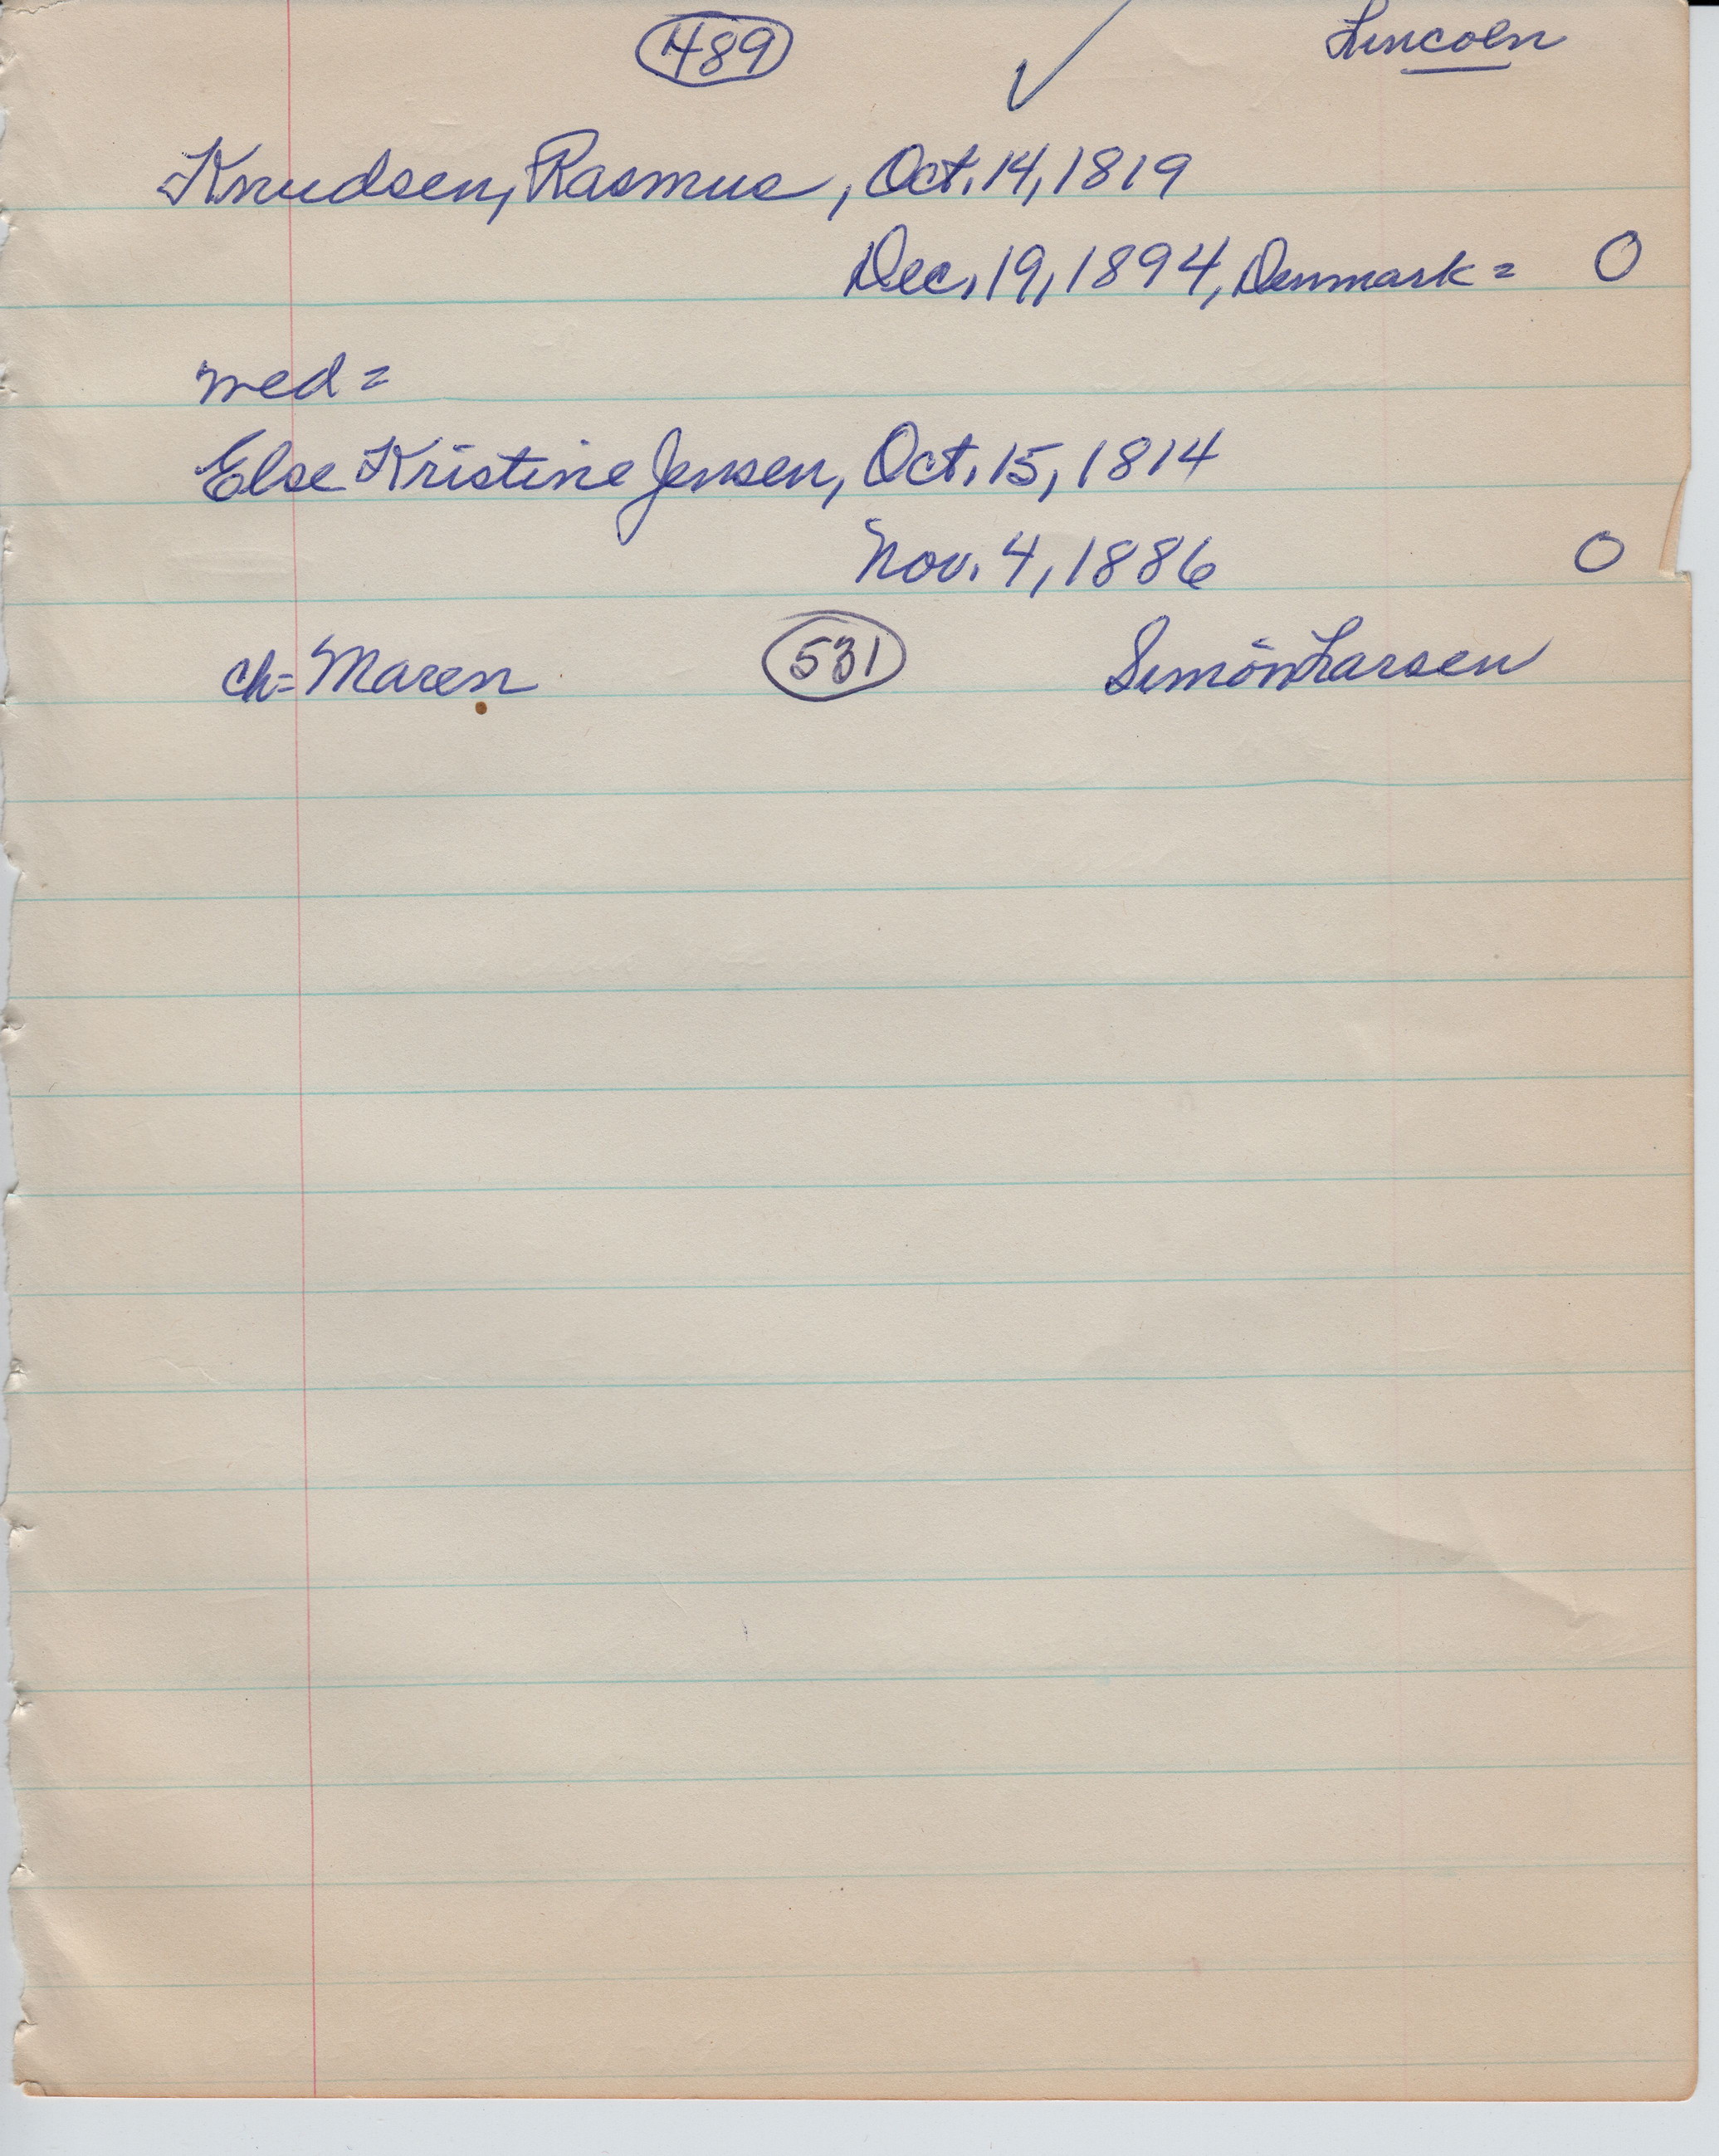 489 ✓ Lincoln
Knudsen, Rasmus, Oct. 14, 1819
Dec. 19, 1894, Denmark = O
med =
Else Kristine Jensen, Oct. 15, 1814
Nov. 4, 1886 O
ch = Maren 531 Simon Larsen